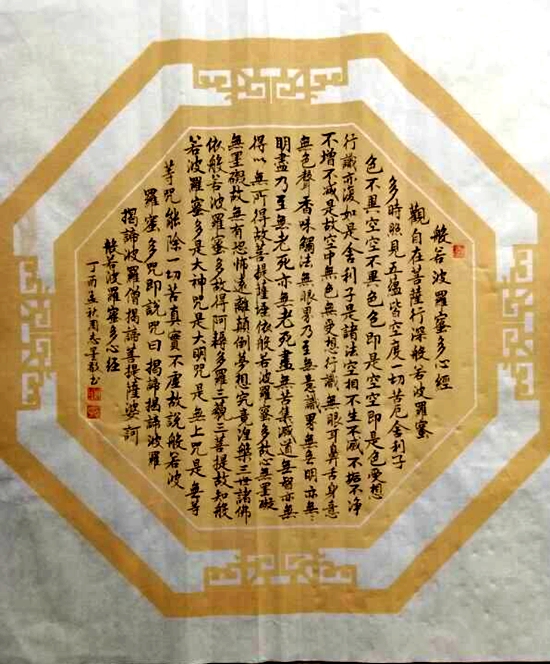 般若波羅蜜多心經
觀自在菩薩行深般若波羅蜜
多時照見五蘊皆空度一切苦厄舍利子
色不異空空不異色色即是空空即是色受想
行識亦復如是舍利子是諸法空相不生不滅不垢不净
不增不減是故空中無色無受想行識無眼耳鼻舌身意
無色聲香味觸法無眼界乃至無意識界無无明亦無
明盡乃至無老死亦無老死盡無苦集滅道無智亦無
得以無所得故菩提薩埵依般若波羅蜜多故心無罣礙
無罣礙故無有恐怖遠離顛倒夢想究竟涅槃三世諸佛
依般若波羅蜜多故得阿耨多羅三藐三菩提故知般
若波羅蜜多是大神咒是大明咒是無上咒是無等
等咒能除一切苦真實不虛故說般若波
羅蜜多咒即說咒曰揭諦揭諦波羅
揭諦波羅僧揭諦菩提薩婆訶
般若波羅蜜多心經
丁酉孟秋周志